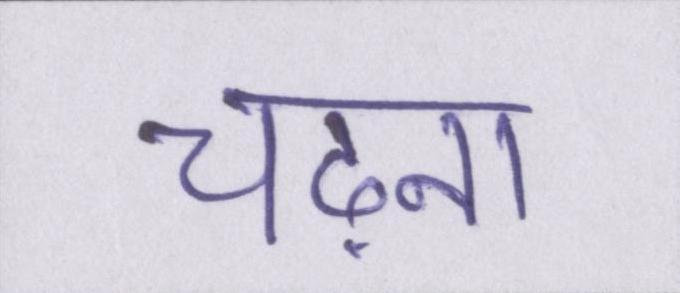 चढ़ना